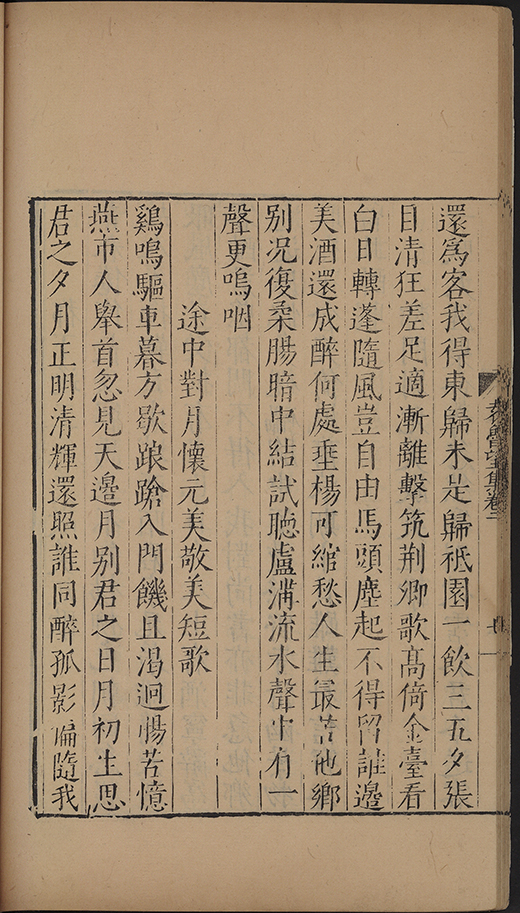 還爲客我得東歸未是歸祗園一飲三五夕張
目清狂差足適漸離擊筑荆卿歌髙倚金臺看
白日轉蓬隨風豈自由馬頭塵起不得留誰邊
美酒還成醉何處垂楊可綰愁人生最苦他鄉
别况復柔腸暗中結試聴盧溝流水聲中有一
聲更嗚咽
途中對月懐元美敬美短歌
鷄鳴驅車暮方歇踉蹌入門饑且渴迴惕苦憶
燕市人舉首忽見天邊月别君之日月初生思
君之夕月正明清輝還照誰同醉孤影偏隨我